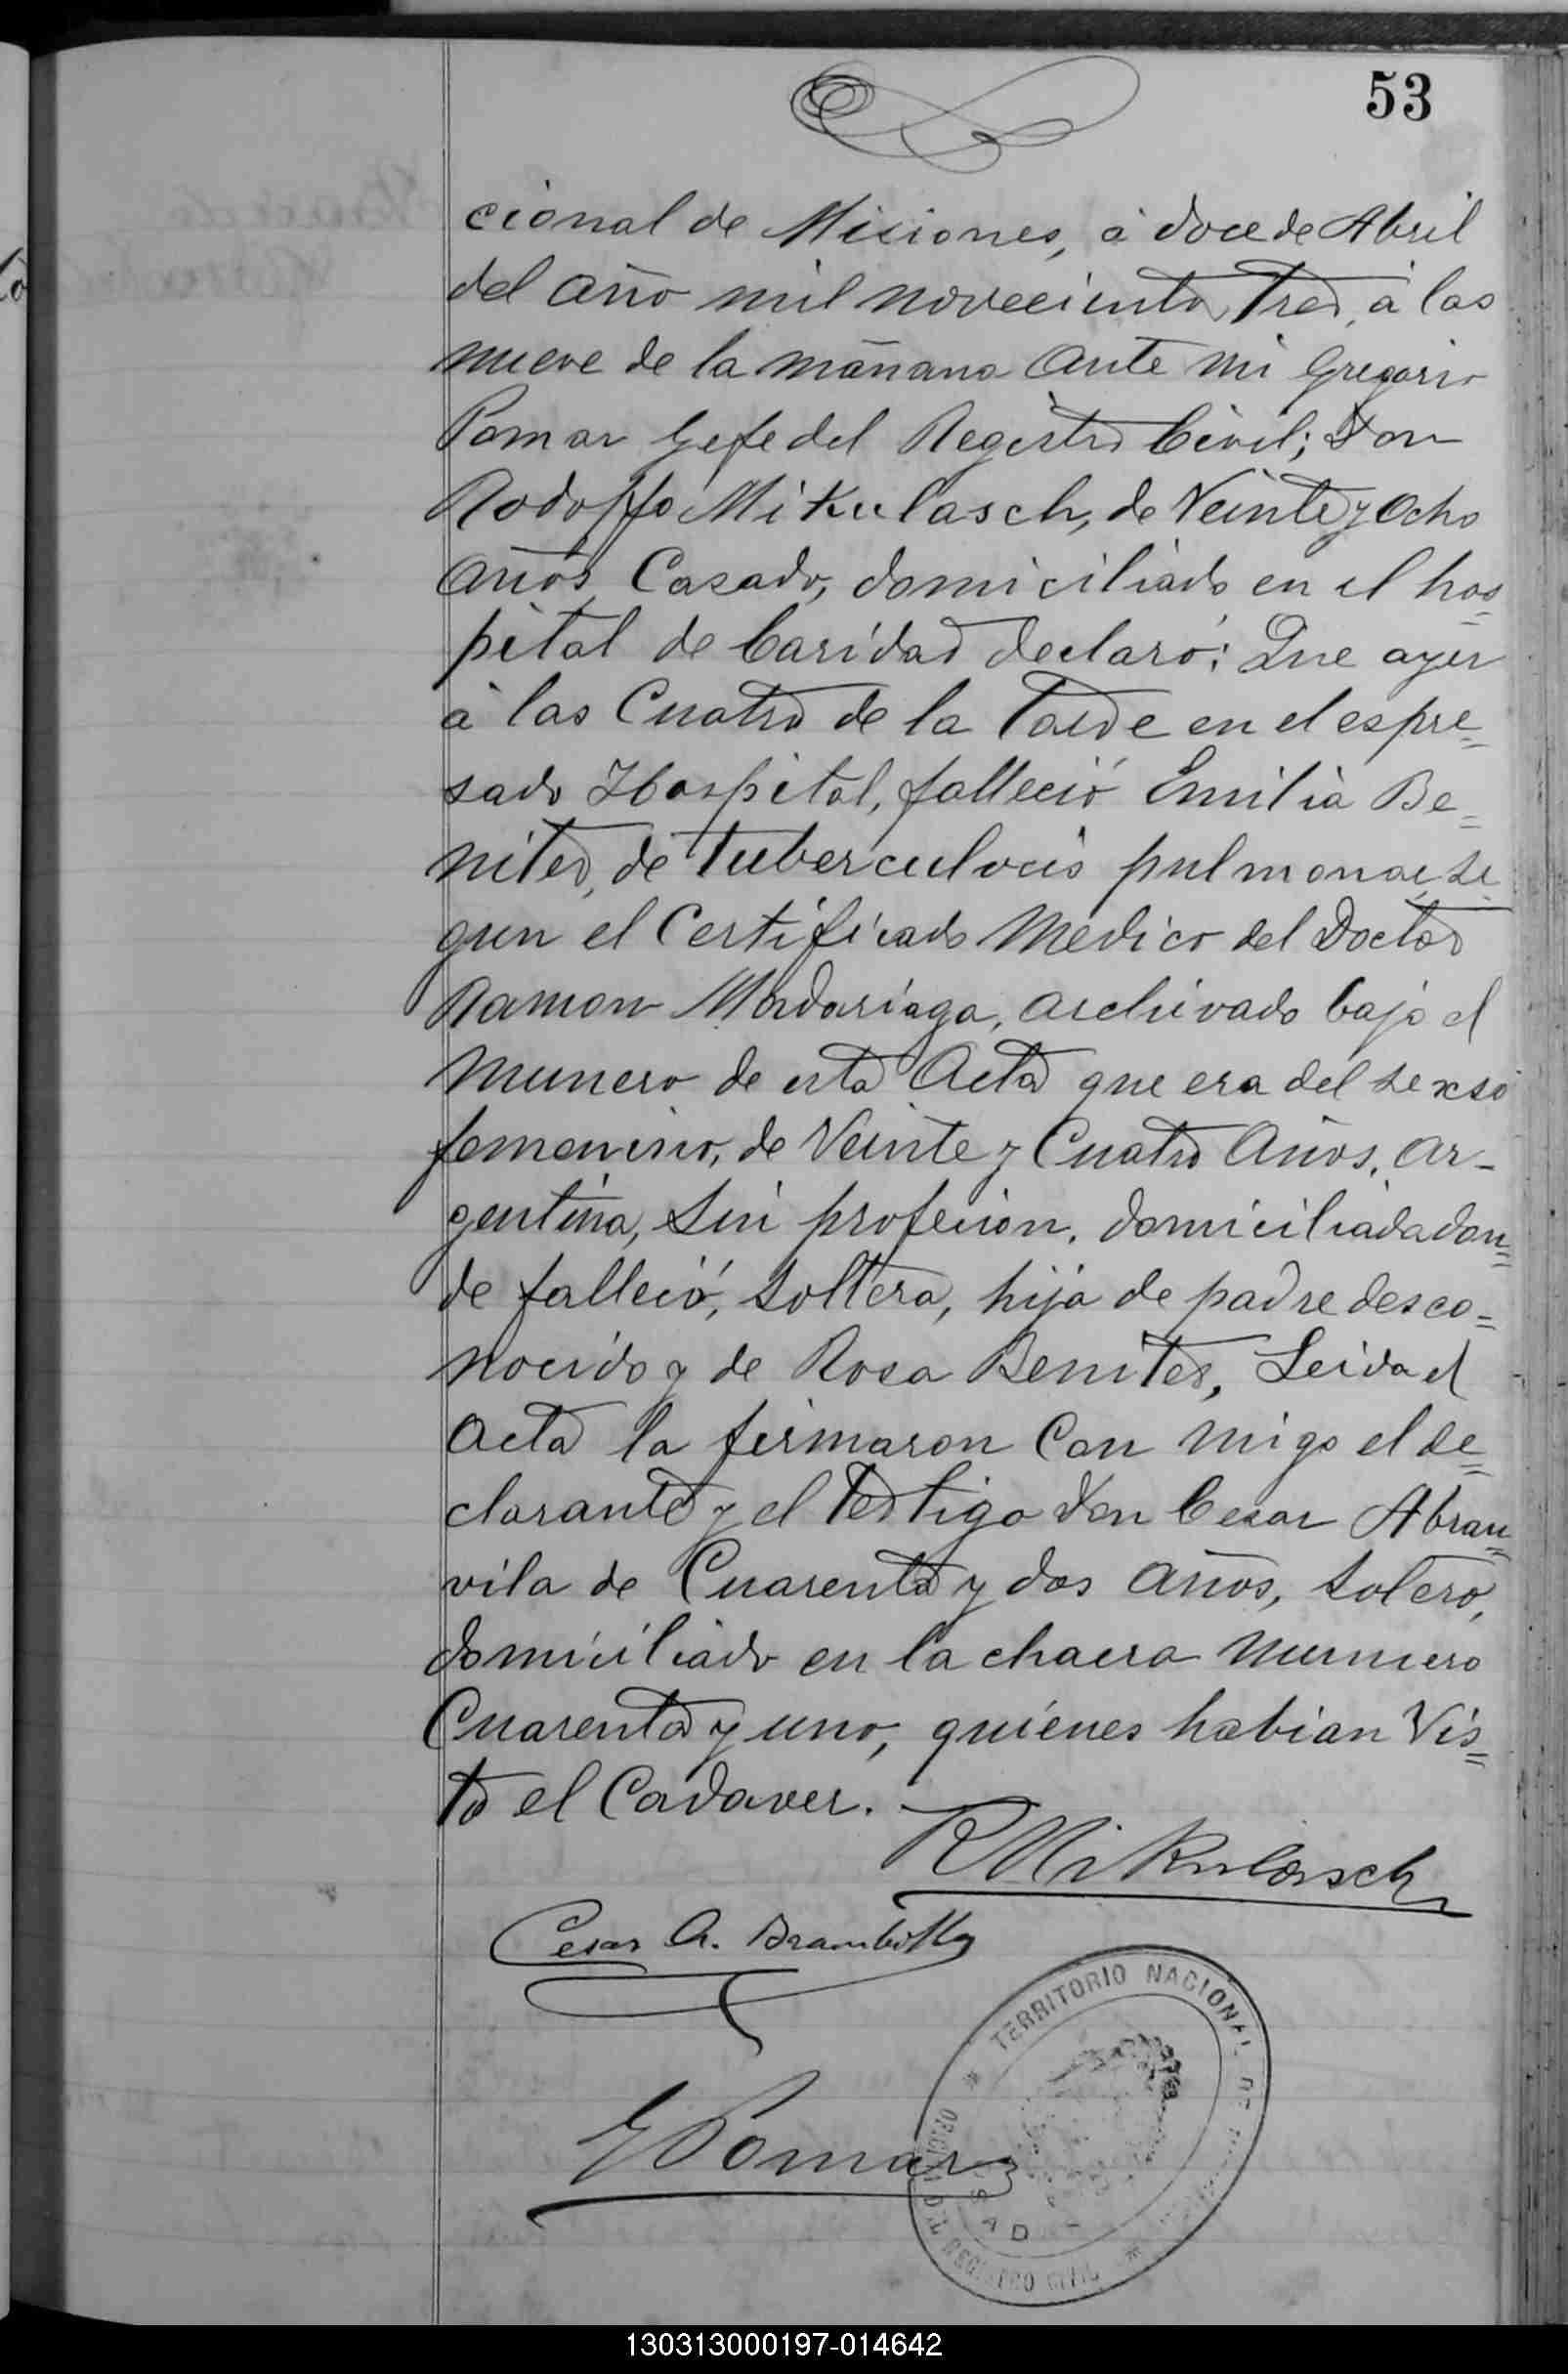 53
cional de Misiones, á doce de Abril
del año mil novecientos tres, á las
nueve de la mañana ante mi Gregorio
Pomar Gefe del Registro Civil; Don
Rodolfo Mikulasch, de Veinte y Ocho
Años, Casado, domiciliado en el hos=
pital de Caridad declaró: Que ayer
á las Cuatro de la Tarde en el espre=
sado Hospital, falleció Emilia Be=
nites, de tuberculosis pulmonar, se=
gun el Certificado Medico del Doctor
Ramon Madariaga, archivado bajo el
numero de esta Acta que era del sexso
femenino, de Veinte y Cuatro Años, ar-
gentina, sin profesion, domiciliada don=
de falleció, soltera, hija de padre desco=
nocido y de Rosa Benites, Leida el
Acta la firmaron Con migo el de=
clarante y el testigo Don Cesar Abran=
vila de Cuarenta y dos Años, solero,
domiciliado en la chacra numero
Cuarenta y uno, quienes habian Vis=
to el Cadaver.
R Mikulasch
Cesar A. Brambilla
G Pomar
TERRITORIO NACIONAL DE
REGISTRO CIVIL
130313000197-014642